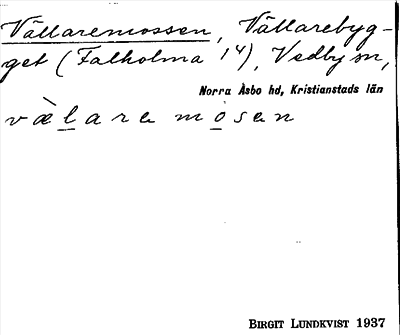 Vällaremossen, Vällarebyg-
get (Falholma 14), Vedby sn,
Norra Åsbo hd, Kristianstads län
vælare mosen
BIRGIT LUNDKVIST 1937